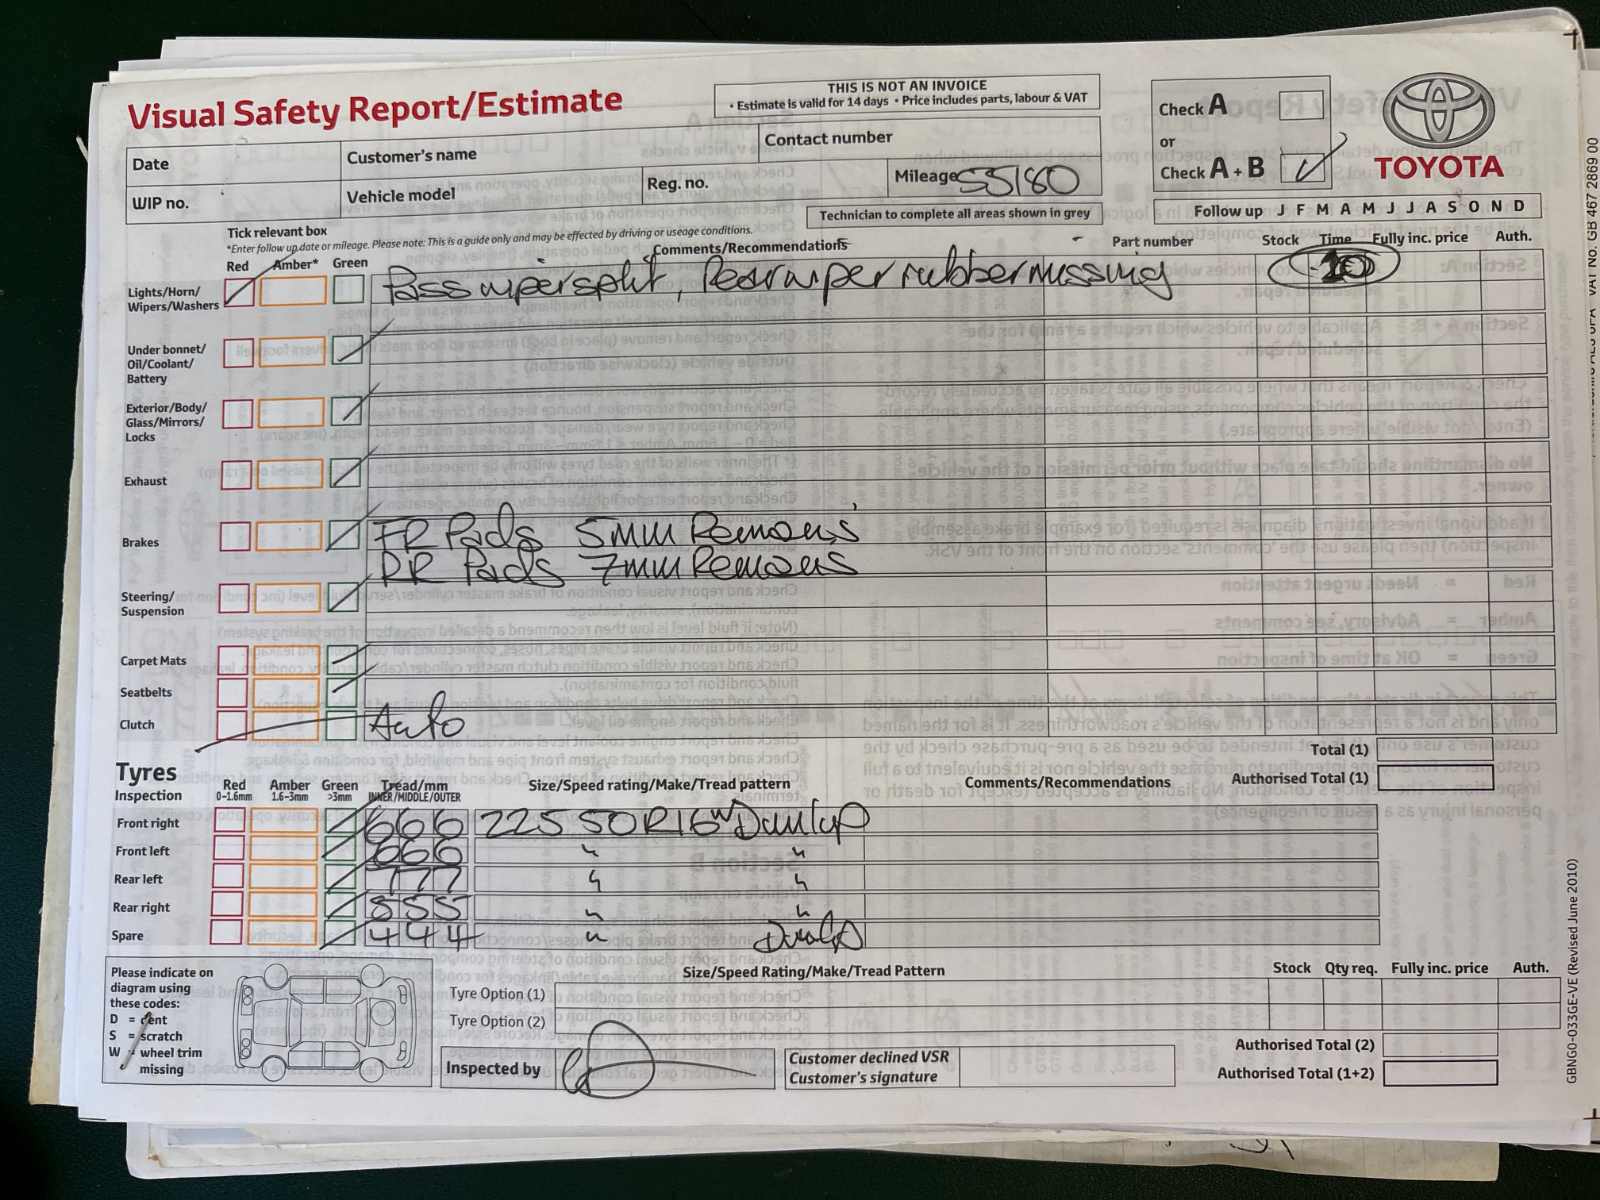 Visual Safety Report/Estimate
THIS IS NOT AN INVOICE
• Estimate is valid for 14 days • Price includes parts, labour & VAT
Check A
or
Check A + B
TOYOTA
Date
Customer's name
Contact number
WIP no.
Vehicle model
Reg. no.
Mileage 55180
Technician to complete all areas shown in grey
Follow up J F M A M J J A S O N D
Tick relevant box
*Enter follow up date or mileage. Please note: This is a guide only and may be effected by driving or useage conditions.
Red Amber* Green Comments/Recommendations Part number Stock Time Fully inc. price Auth.
Lights/Horn/
Wipers/Washers
Pass wiper split, Rear wiper rubber missing
Under bonnet/
Oil/Coolant/
Battery
Exterior/Body/
Glass/Mirrors/
Locks
Exhaust
Brakes
FR Pads 5mm Remains
RR Pads 7mm Remains
Steering/
Suspension
Carpet Mats
Seatbelts
Clutch Auto
Total (1)
Authorised Total (1)
Tyres
Inspection
Red
0-1.6mm
Amber
1.6-3mm
Green
>3mm
Tread/mm
INNER/MIDDLE/OUTER
Size/Speed rating/Make/Tread pattern
Comments/Recommendations
Front right 6 6 6 225 50R16 W Dunlop
Front left 6 6 6 " "
Rear left 7 7 7 " "
Rear right 5 5 5 " "
Spare 4 4 4 " Dunlop
Please indicate on
diagram using
these codes:
D = dent
S = scratch
W = wheel trim
missing
Size/Speed Rating/Make/Tread Pattern Stock Qty req. Fully inc. price Auth.
Tyre Option (1)
Tyre Option (2)
Authorised Total (2)
Authorised Total (1+2)
Inspected by
Customer declined VSR
Customer's signature
GBNG0-033GE-VE (Revised June 2010)
VAT No. GB 467 2869 00